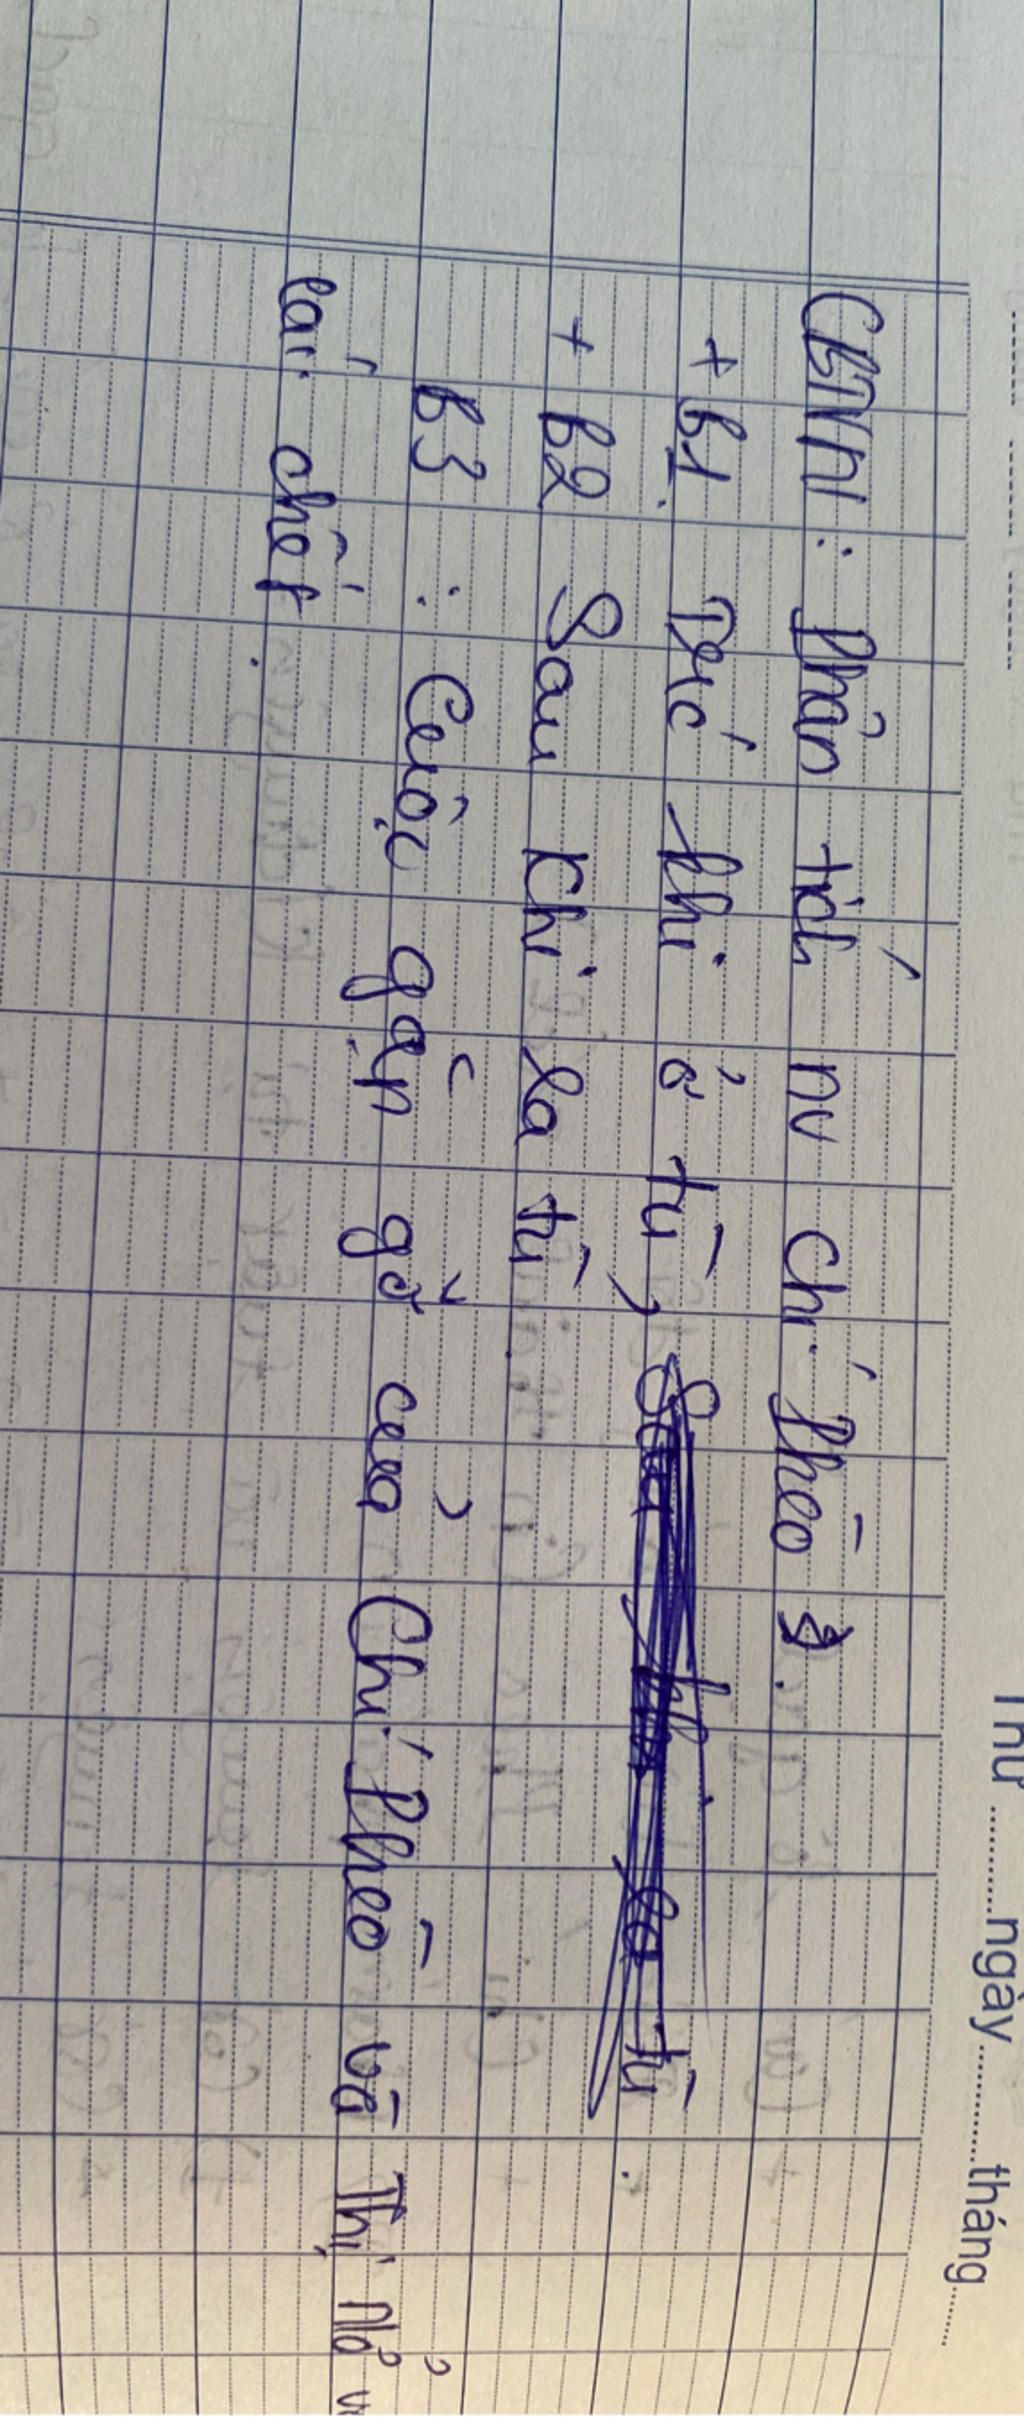 Thứ ............ngày............tháng......
CBTVN : Phân tích nv Chí Phèo
+ B1. Trc' khi ở tù,
+ B2 Sau khi ra tù.
B3 : Cuộc gặp gỡ của Chí Phèo và Thị Nở
cái chết.